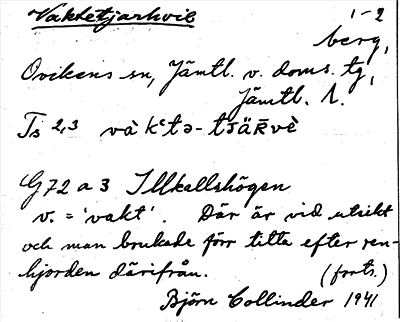 Vaktetjarhvie 1-2
berg,
Ovikens sn, Jämtl. v. doms. tg,
Jämtl. l.
Ts 2,3 và kʿtə- tJäR̄vè
G 72 a 3 Illkallshögen
v. = 'vakt'. Där är vid utsikt
och man brukade förr titta efter ren-
hjorden därifrån. (forts.)
Björn Collinder 1941